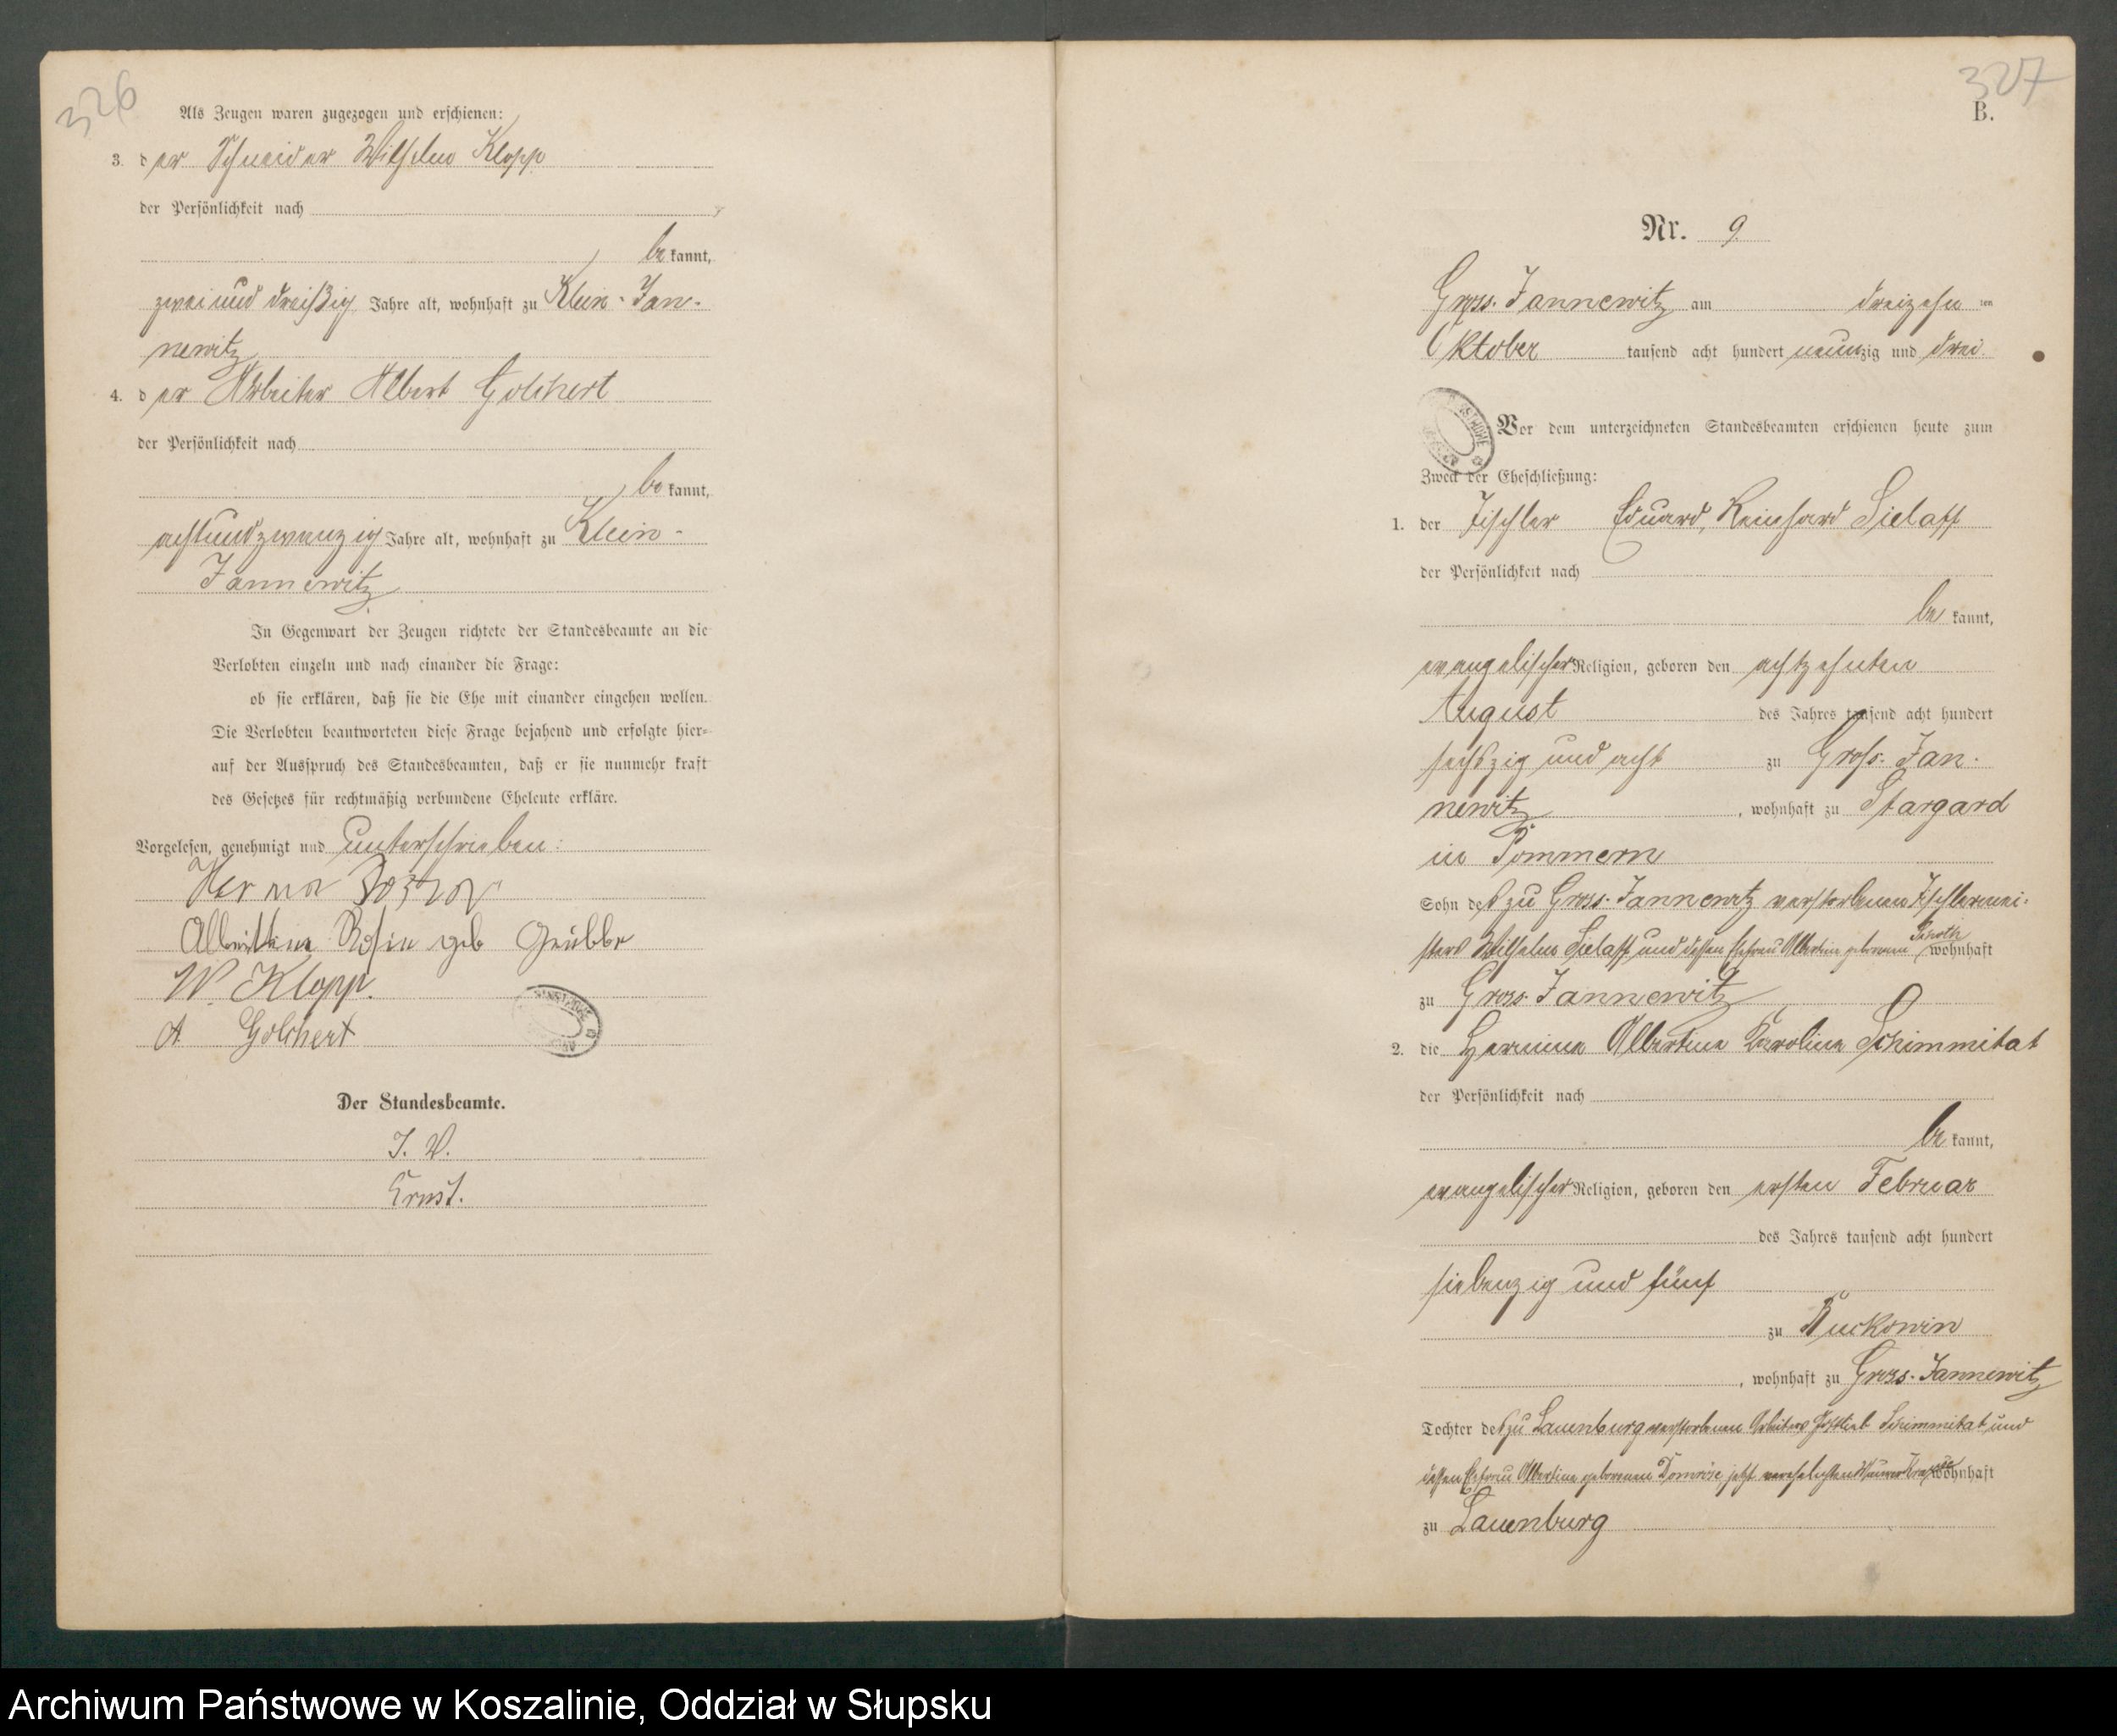 326
Als Zeugen waren zugezogen und erschienen:
3. der Schneider Wilhelm Klopp
der Persönlichkeit nach
bekannt,
zweiunddreißig Jahre alt, wohnhaft zu Klein-Jan-
newitz
4. der Arbeiter Albert Golchert
der Persönlichkeit nach
bekannt,
achtundzwanzig Jahre alt, wohnhaft zu Klein-
Jannewitz
In Gegenwart der Zeugen richtete der Standesbeamte an die
Verlobten einzeln und nach einander die Frage:
ob sie erklären, daß sie die Ehe mit einander eingehen wollen.
Die Verlobten beantworteten diese Frage bejahend und erfolgte hier-
auf der Ausspruch des Standesbeamten, daß er sie nunmehr kraft
des Gesetzes für rechtmäßig verbundene Eheleute erkläre.
Vorgelesen, genehmigt und unterschrieben:
geb
W. Klopp.
A Golchert
Der Standesbeamte.
J. V.
Ernst.
327
B.
Nr. 9.
Gross-Jannewitz am dreizehnten
Oktober tausend acht hundert neunzig und drei.
Vor dem unterzeichneten Standesbeamten erschienen heute zum
Zweck der Eheschließung:
1. der Tischler Eduard, Reinhard Sielaff
der Persönlichkeit nach
bekannt,
evangelischer Religion, geboren den achtzehnten
August des Jahres tausend acht hundert
sechszig und acht zu Gross-Jan-
newitz, wohnhaft zu Stargard
in Pommern
Sohn des zu Gross-Jannewitz verstorbenen Tischlermei-
sters Wilhelm Sielaff und dessen Ehefrau Albertine geborenen wohnhaft
zu Gross-Jannewitz
2. die Hermine Albertine Karoline Schimmitat
der Persönlichkeit nach
bekannt,
evangelischer Religion, geboren den ersten Februar
des Jahres tausend acht hundert
siebenzig und fünf
zu Ruckowin
, wohnhaft zu Gross-Jannewitz
Tochter des zu Lauenburg verstorbenen Arbeiters Gottlieb Schimmitat und
dessen Ehefrau Albertine geborenen Domröse jetzt verehelichten Maurer wohnhaft
zu Lauenburg
Archiwum Państwowe w Koszalinie, Oddział w Słupsku